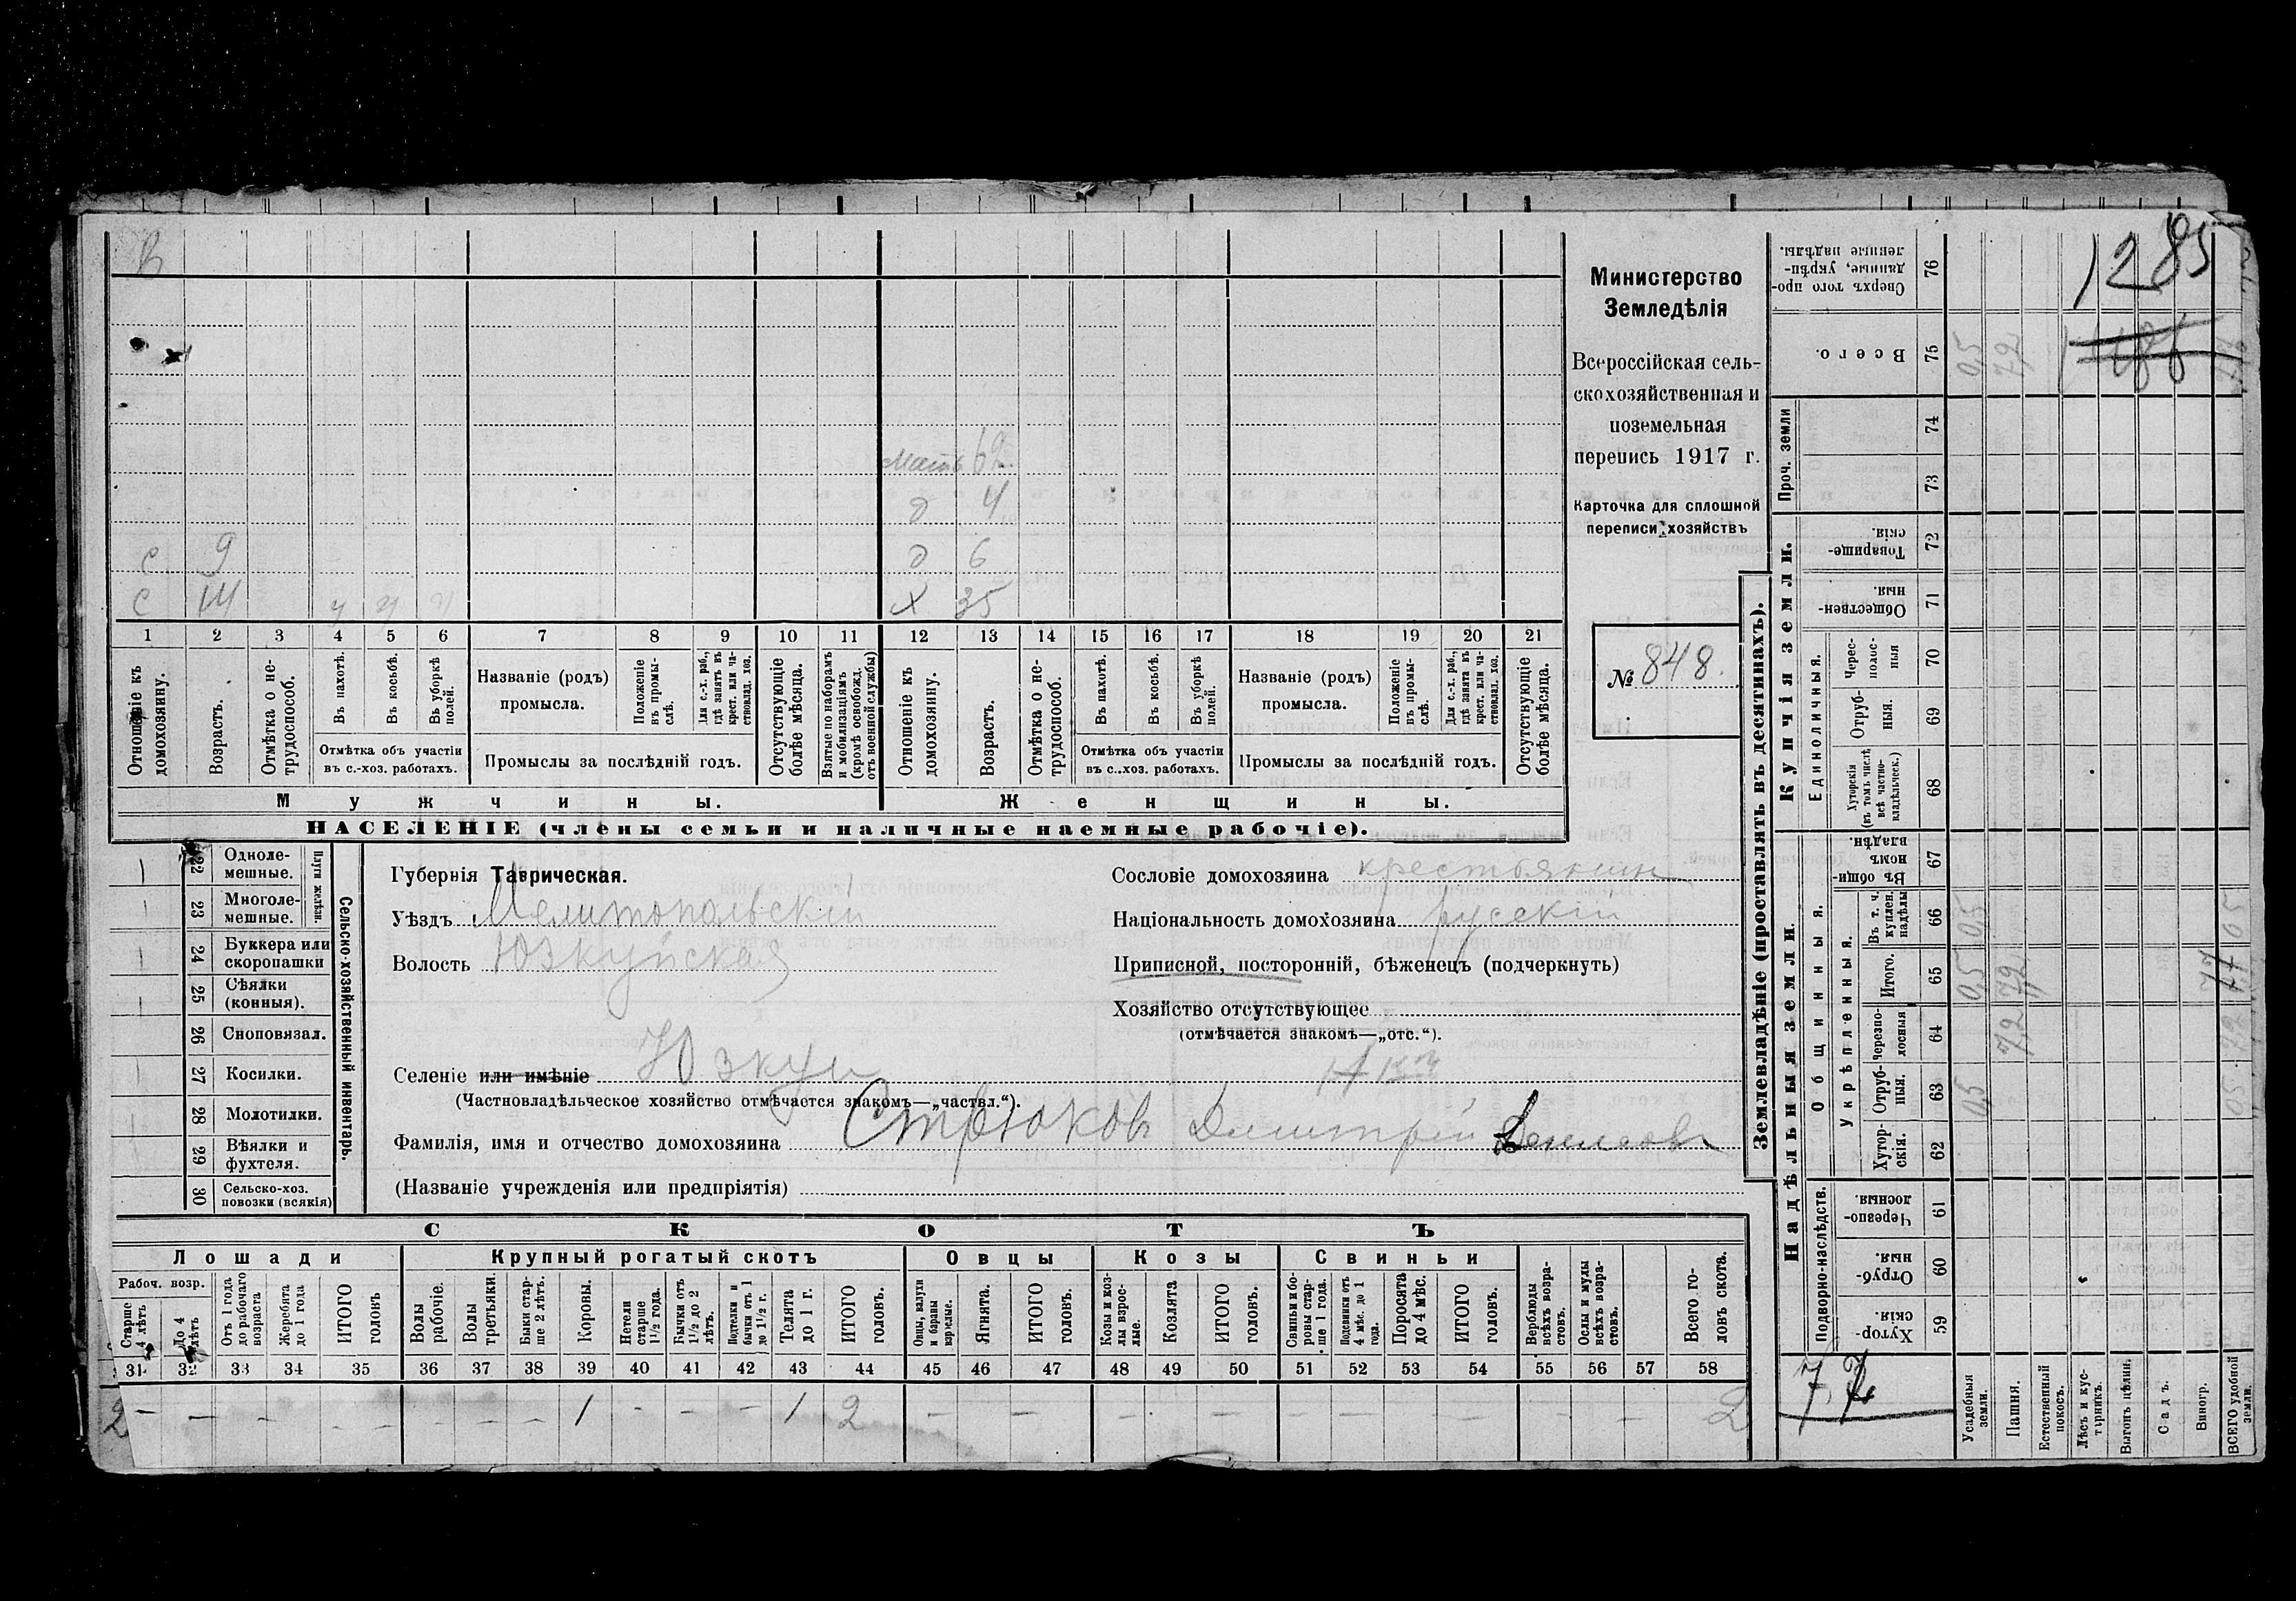 В
1285
Министерство
Земледѣлія
Всероссійская сель-
скохозяйственная и
поземельная
перепись 1917 г.
Карточка для сплошной
переписи хозяйствъ
№ 848.
мать 62
д 4
с 9 д 6
с 14 ч ч ч Х 35
1 2 3 4 5 6 7 8 9 10 11 12 13 14 15 16 17 18 19 20 21
Отношеніе къ домохозяину.
Возрастъ.
Отмѣтка о не-трудоспособ.
Въ пахотѣ.
Въ косьбѣ.
Въ уборкѣ полей.
Отмѣтка объ участіи въ с.-хоз. работахъ.
Названіе (родъ) промысла.
Положеніе въ промы-слѣ.
Для с.-х. раб., гдѣ занятъ въ крест. или ча-ствовлад. хоз.
Промыслы за послѣдній годъ.
Отсутствующіе болѣе мѣсяца.
Взятые по наборамъ и мобилизаціямъ (кромѣ освобожд. отъ военной службы)
Отношеніе къ домохозяину.
Возрастъ.
Отмѣтка о не-трудоспособ.
Въ пахотѣ.
Въ косьбѣ.
Въ уборкѣ полей.
Отмѣтка объ участіи въ с..хоз. работахъ.
Названіе (родъ) промысла.
Положеніе въ промы-слѣ.
Для с.-х. раб., гдѣ занята въ крест. или ча-ствовлад. хоз.
Промыслы за послѣдній годъ.
Отсутствующіе болѣе мѣсяца.
Мужчины. Женщины.
НАСЕЛЕНІЕ (члены семьи и наличные наемные рабочіе).
22 Одноле-мешные.
23 Многоле-мешные.
Плуги желѣзн.
24 Буккера или скоропашки
25 Сѣялки (конныя).
26 Сноповязал.
27 Косилки.
28 Молотилки.
29 Вѣялки и фухтеля.
30 Сельско-хоз. повозки (всякія)
Сельско-хозяйственный инвентарь.
Губернія Таврическая.
Уѣздъ Мелитопольскій
Волость Юзкуйская
Селеніе или имѣніе Юзкуи
(Частновладѣльческое хозяйство отмѣчается знакомъ—„частвл.“).
Фамилія, имя и отчество домохозяина Стрюковъ Димитрій Денисовъ
(Названіе учрежденія или предпріятія)
Сословіе домохозяина крестьянин
Національность домохозяина русскій
Приписной, посторонній, бѣженецъ (подчеркнуть)
Хозяйство отсутствующее
(отмѣчается знакомъ—„отс.“).
СКОТЪ
Лошади Крупный рогатый скотъ Овцы Козы Свиньи
Рабоч. возр.
Старше 4 лѣтъ
До 4 лѣтъ
Отъ 1 года до рабочаго возраста
Жеребята до 1 года
ИТОГО головъ
Волы рабочіе.
Волы третьяки.
Быки стар-ше 2 лѣтъ.
Коровы.
Нетели старше 1½ года.
Бычки отъ 1½ до 2 лѣтъ.
Подтелки и бычки отъ 1 до 1½ г.
Телята до 1 г.
ИТОГО головъ.
Овцы, валухи и бараны взрослые.
Ягнята.
ИТОГО головъ.
Козы и коз-лы взрос-лые.
Козлята
ИТОГО головъ.
Свиньи и бо-ровы стар-ше 1 года.
Подсвинки отъ 4 мѣс. до 1 года.
Поросята до 4 мѣс.
ИТОГО головъ.
Верблюды всѣхъ возра-стовъ.
Ослы и мулы всѣхъ возра-стовъ.
Всего го-ловъ скота.
31 32 33 34 35 36 37 38 39 40 41 42 43 44 45 46 47 48 49 50 51 52 53 54 55 56 57 58
2 — — — — — — — — 1 - - - 1 2 — — — — — — — — — 2
Землевладѣніе (проставлять въ десятинахъ).
Купчія земли.
Надѣльныя земли.
Сверхъ того про-данные, укрѣп-ленные надѣлы. 76
Всего. 75 0,5 7,2
Проч. земли 74 73
Товарище-скія 72
Обществен-ныя. 71
Единоличныя.
Черес-полос-ныя 70
Отруб-ныя. 69
Хуторскія (въ томъ числѣ всѣ частно-владѣльческ.) 68
Общинныя.
Въ общин-номъ владѣн. 67
Укрѣпленныя.
Въ т. ч. куплен. надѣлы 66 0,5
Итого. 65 0,5 7,2 7,7
Черезпо-лосныя 64 7,2
Отруб-ныя. 63 0,5
Хутор-скія. 62
Подворно-наслѣдств.
Черезпо-лосныя. 61
Отруб-ныя. 60
Хутор-скія. 59
7,7
Усадебныя земли.
Пашня.
Естественный покосъ.
Лѣсъ и кус-тарникъ.
Выгонъ цѣлин.
Садъ.
Виногр.
ВСЕГО удобной земли.